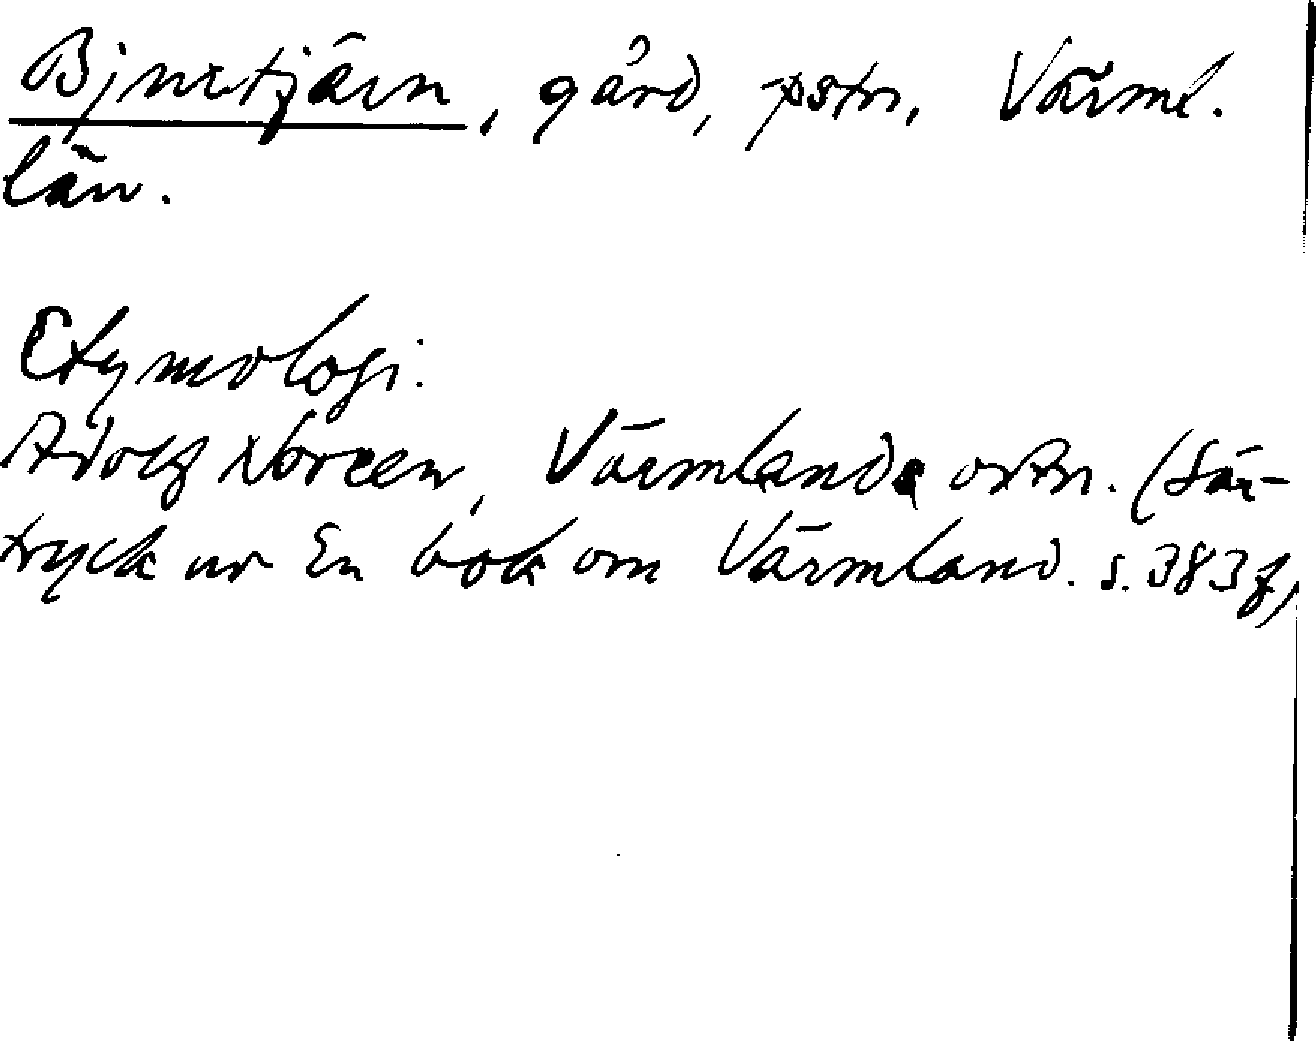 Bjurtjärn, gård, pstn, Värml.
län.
Etymologi:
Adolf Noreen, Värmlands ortn. (Sär-
tryck ur En bok om Värmland. s. 383 f)